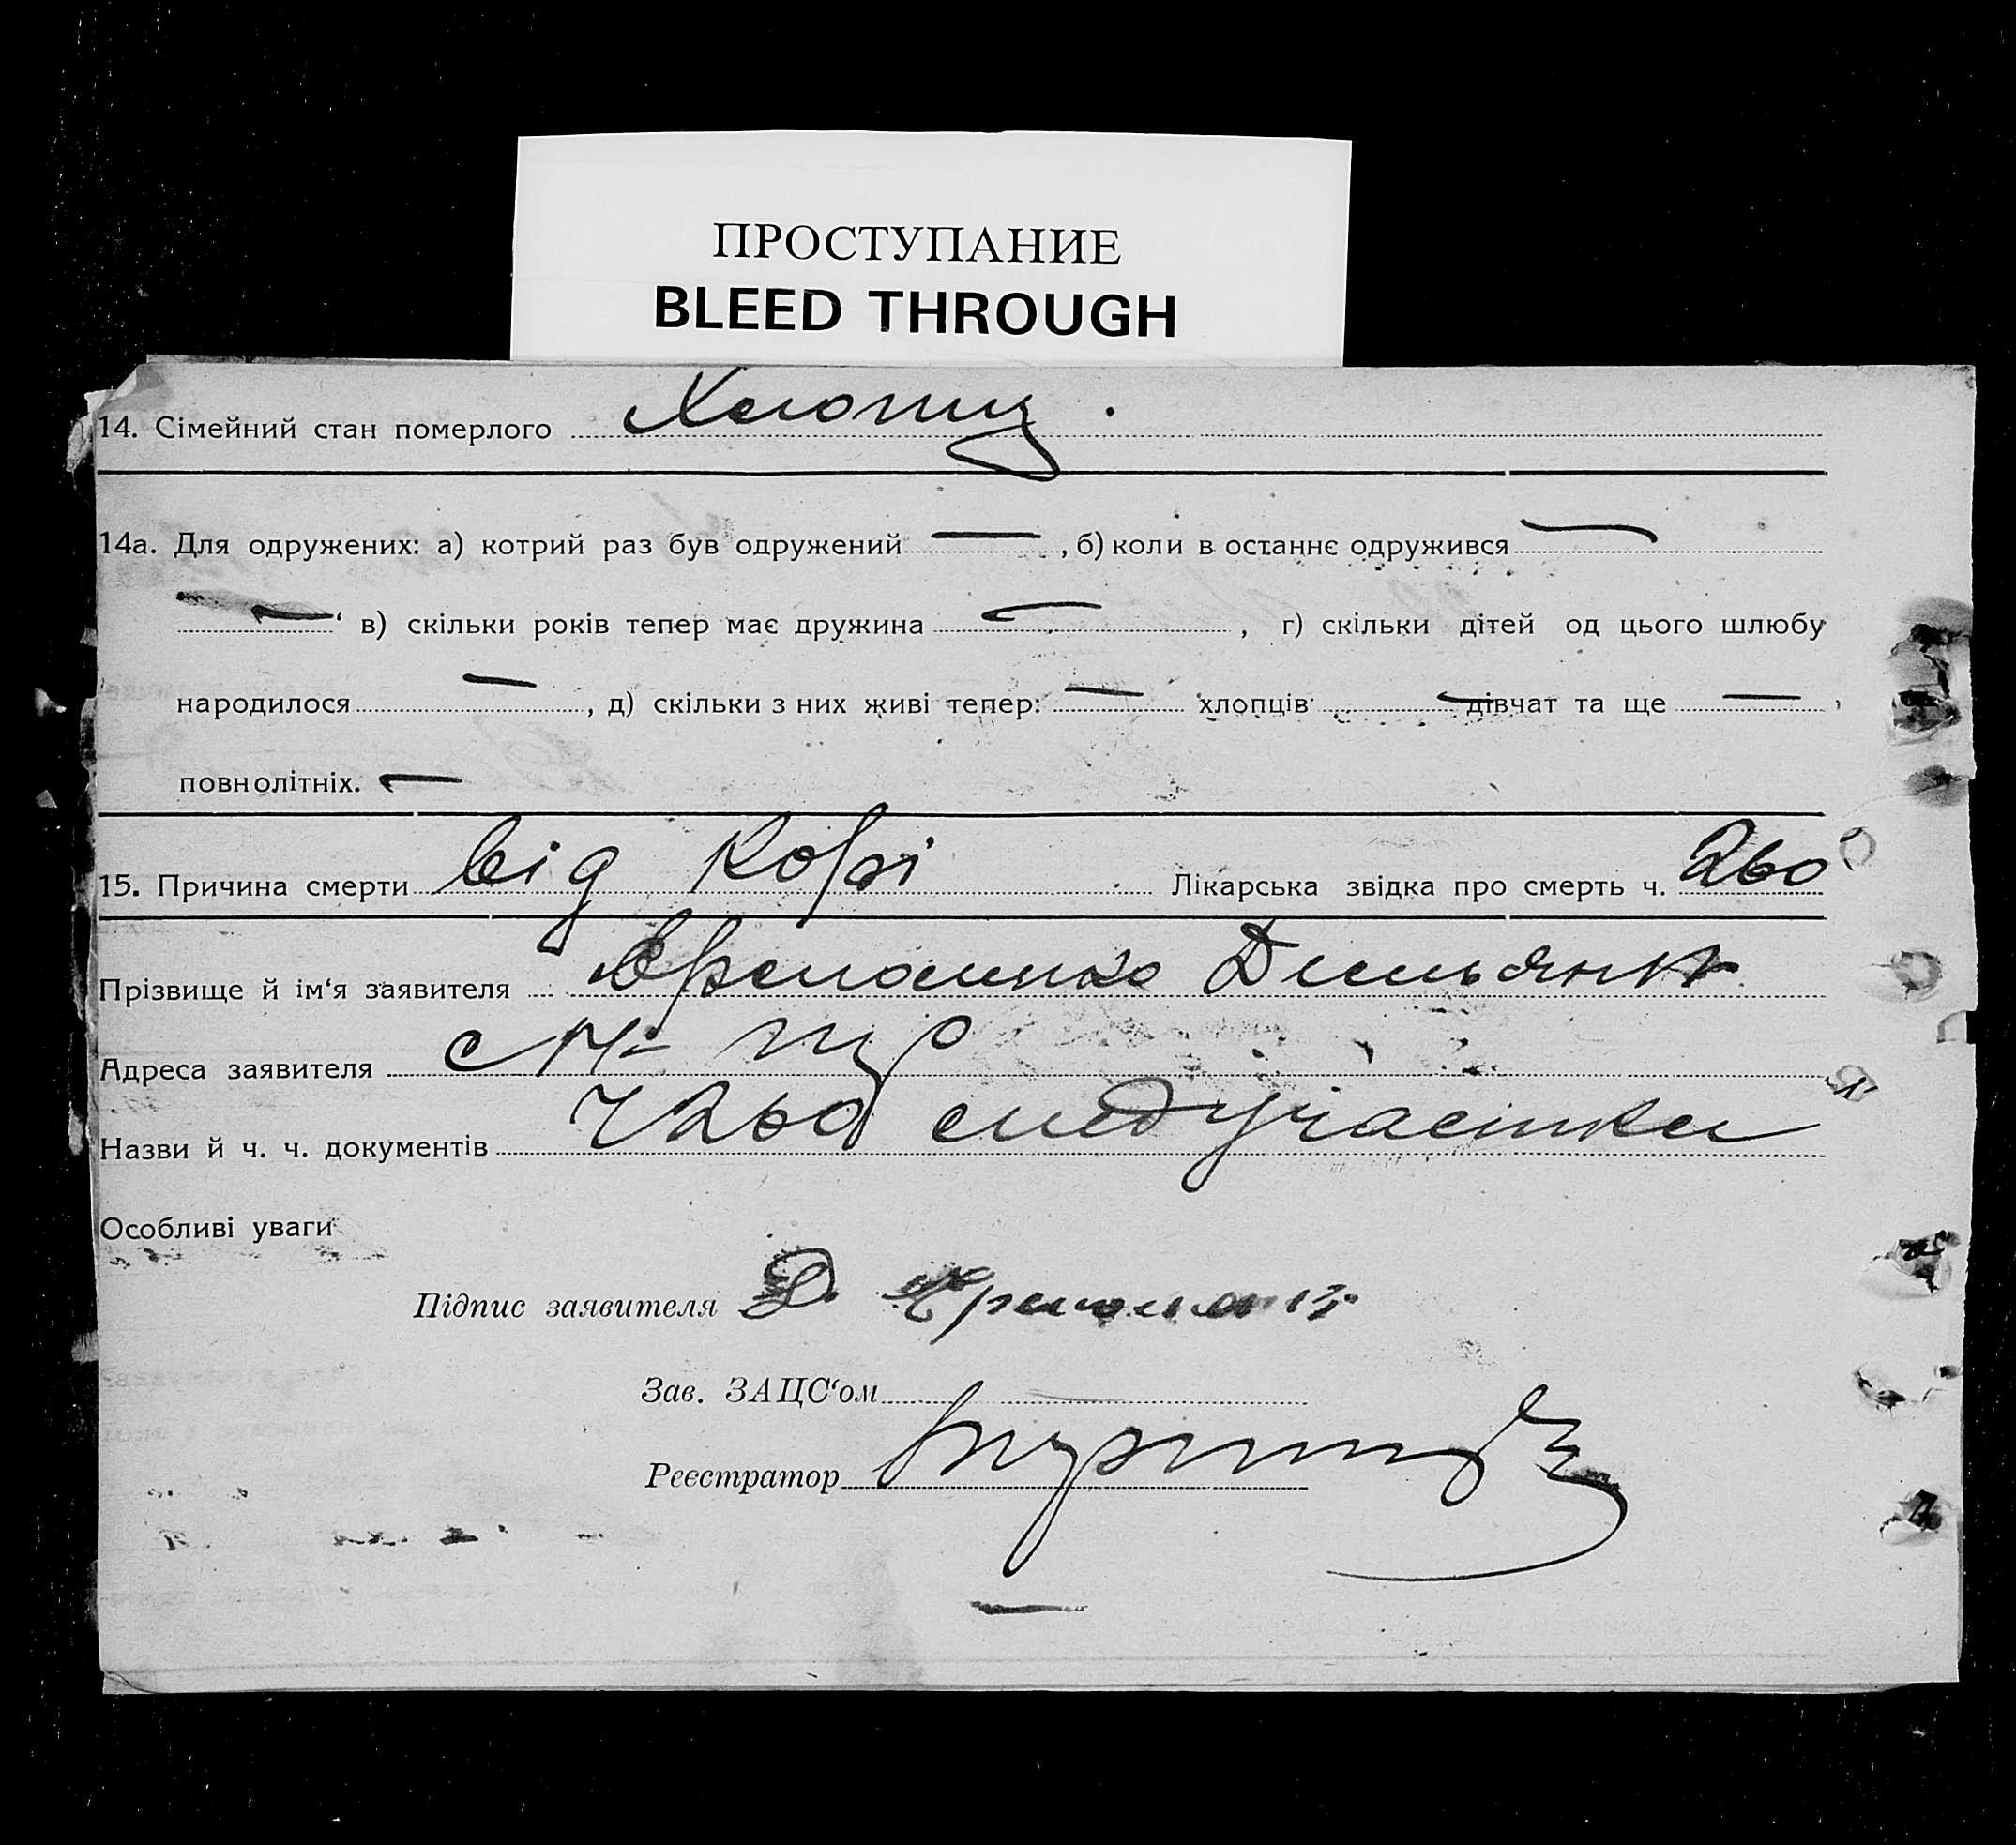 ПРОСТУПАНИЕ
BLEED THROUGH
14. Сімейний стан померлого Хлопец.
14а. Для одружених: а) котрий раз був одружений — , б) коли в останнє одружився —
— ‘ в) скільки років тепер має дружина — , г) скільки дітей од цього шлюбу
народилося — , д) скільки з них живі тепер: — хлопців — дівчат та ще — ,
повнолітніх. —
15. Причина смерти від корі Лікарська звідка про смерть ч. 260
Прізвище й ім‘я заявителя Демьян
Адреса заявителя с
Назви й ч. ч. документів ч 260 медучастка
Особливі уваги
Підпис заявителя Д.
Зав. ЗАЦС‘ом
Реєстратор